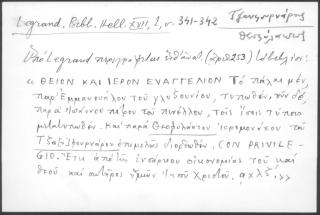 Legrand, Bibl. Hell. XVII, 2, σ. 341-342 Τζανφουρνάρος
Θεοφύλακτος
Ὑπὸ Legrand περιγράφεται (ἀρ. 253)
« ΘΕΙΟΝ ΚΑΙ ΙΕΡΟΝ ΕΥΑΓΓΕΛΙΟΝ Τὸ πάλαι μὲν
παρ' Ἐμμανουήλου τοῦ γλυζουνίου, τυπωθέν, νῦν δὲ,
παρὰ Ἰωάννου πέτρου τοῦ πινέλλου, τοῖς ἰνετίσι τύποις
μετατυπωθέν. Καὶ παρὰ Θεοφυλάκτου Ἱερομονάχου τοῦ
Τζα[ν]φουρνάρου ἐπιμελῶς διορθωθέν. CON PRIVILE-
GIO. Ἔτει ἀπὸ τῆς ἐνσάρκου οἰκονομίας τοῦ κυρίου καὶ
θεοῦ καὶ σωτῆρος ἡμῶν Ἰησοῦ Χριστοῦ. αχλξ. »